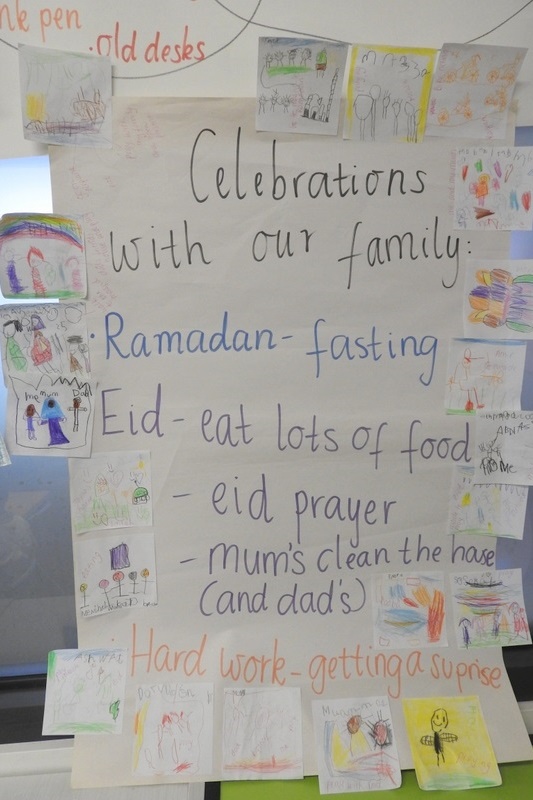 nk pen
·old desks
Celebrations
with our family:
·Ramadan- fasting
Me mum Dad
Eid- eat lots of food
Me
- eid prayer
- mum's clean the hase
(and dad's)
Hard work-getting a suprise